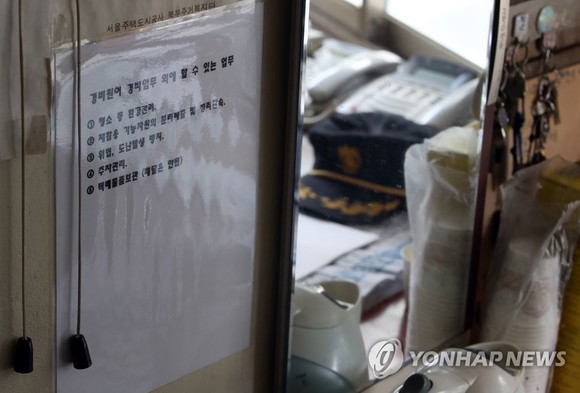 서울주택도시공사 북부주거복지단
경비원이 경비업무 외에 할 수 있는 업무
① 청소 등 환경관리.
② 재활용 가능자원의 분리배출 및 정리단속.
③ 위험, 도난발생 방지.
④ 주차관리.
⑤ 택배물품보관 (배달은 안됨)
YONHAP NEWS